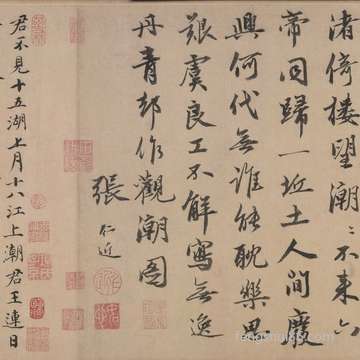 渚倚樓望潮潮不來六
帝同歸一坵土人間廢
興何代無誰能耽樂思
艱虞良工不解寫無逸
丹青却作觀潮圖
張仁近
君不見十五湖上月十八江上潮君王連日